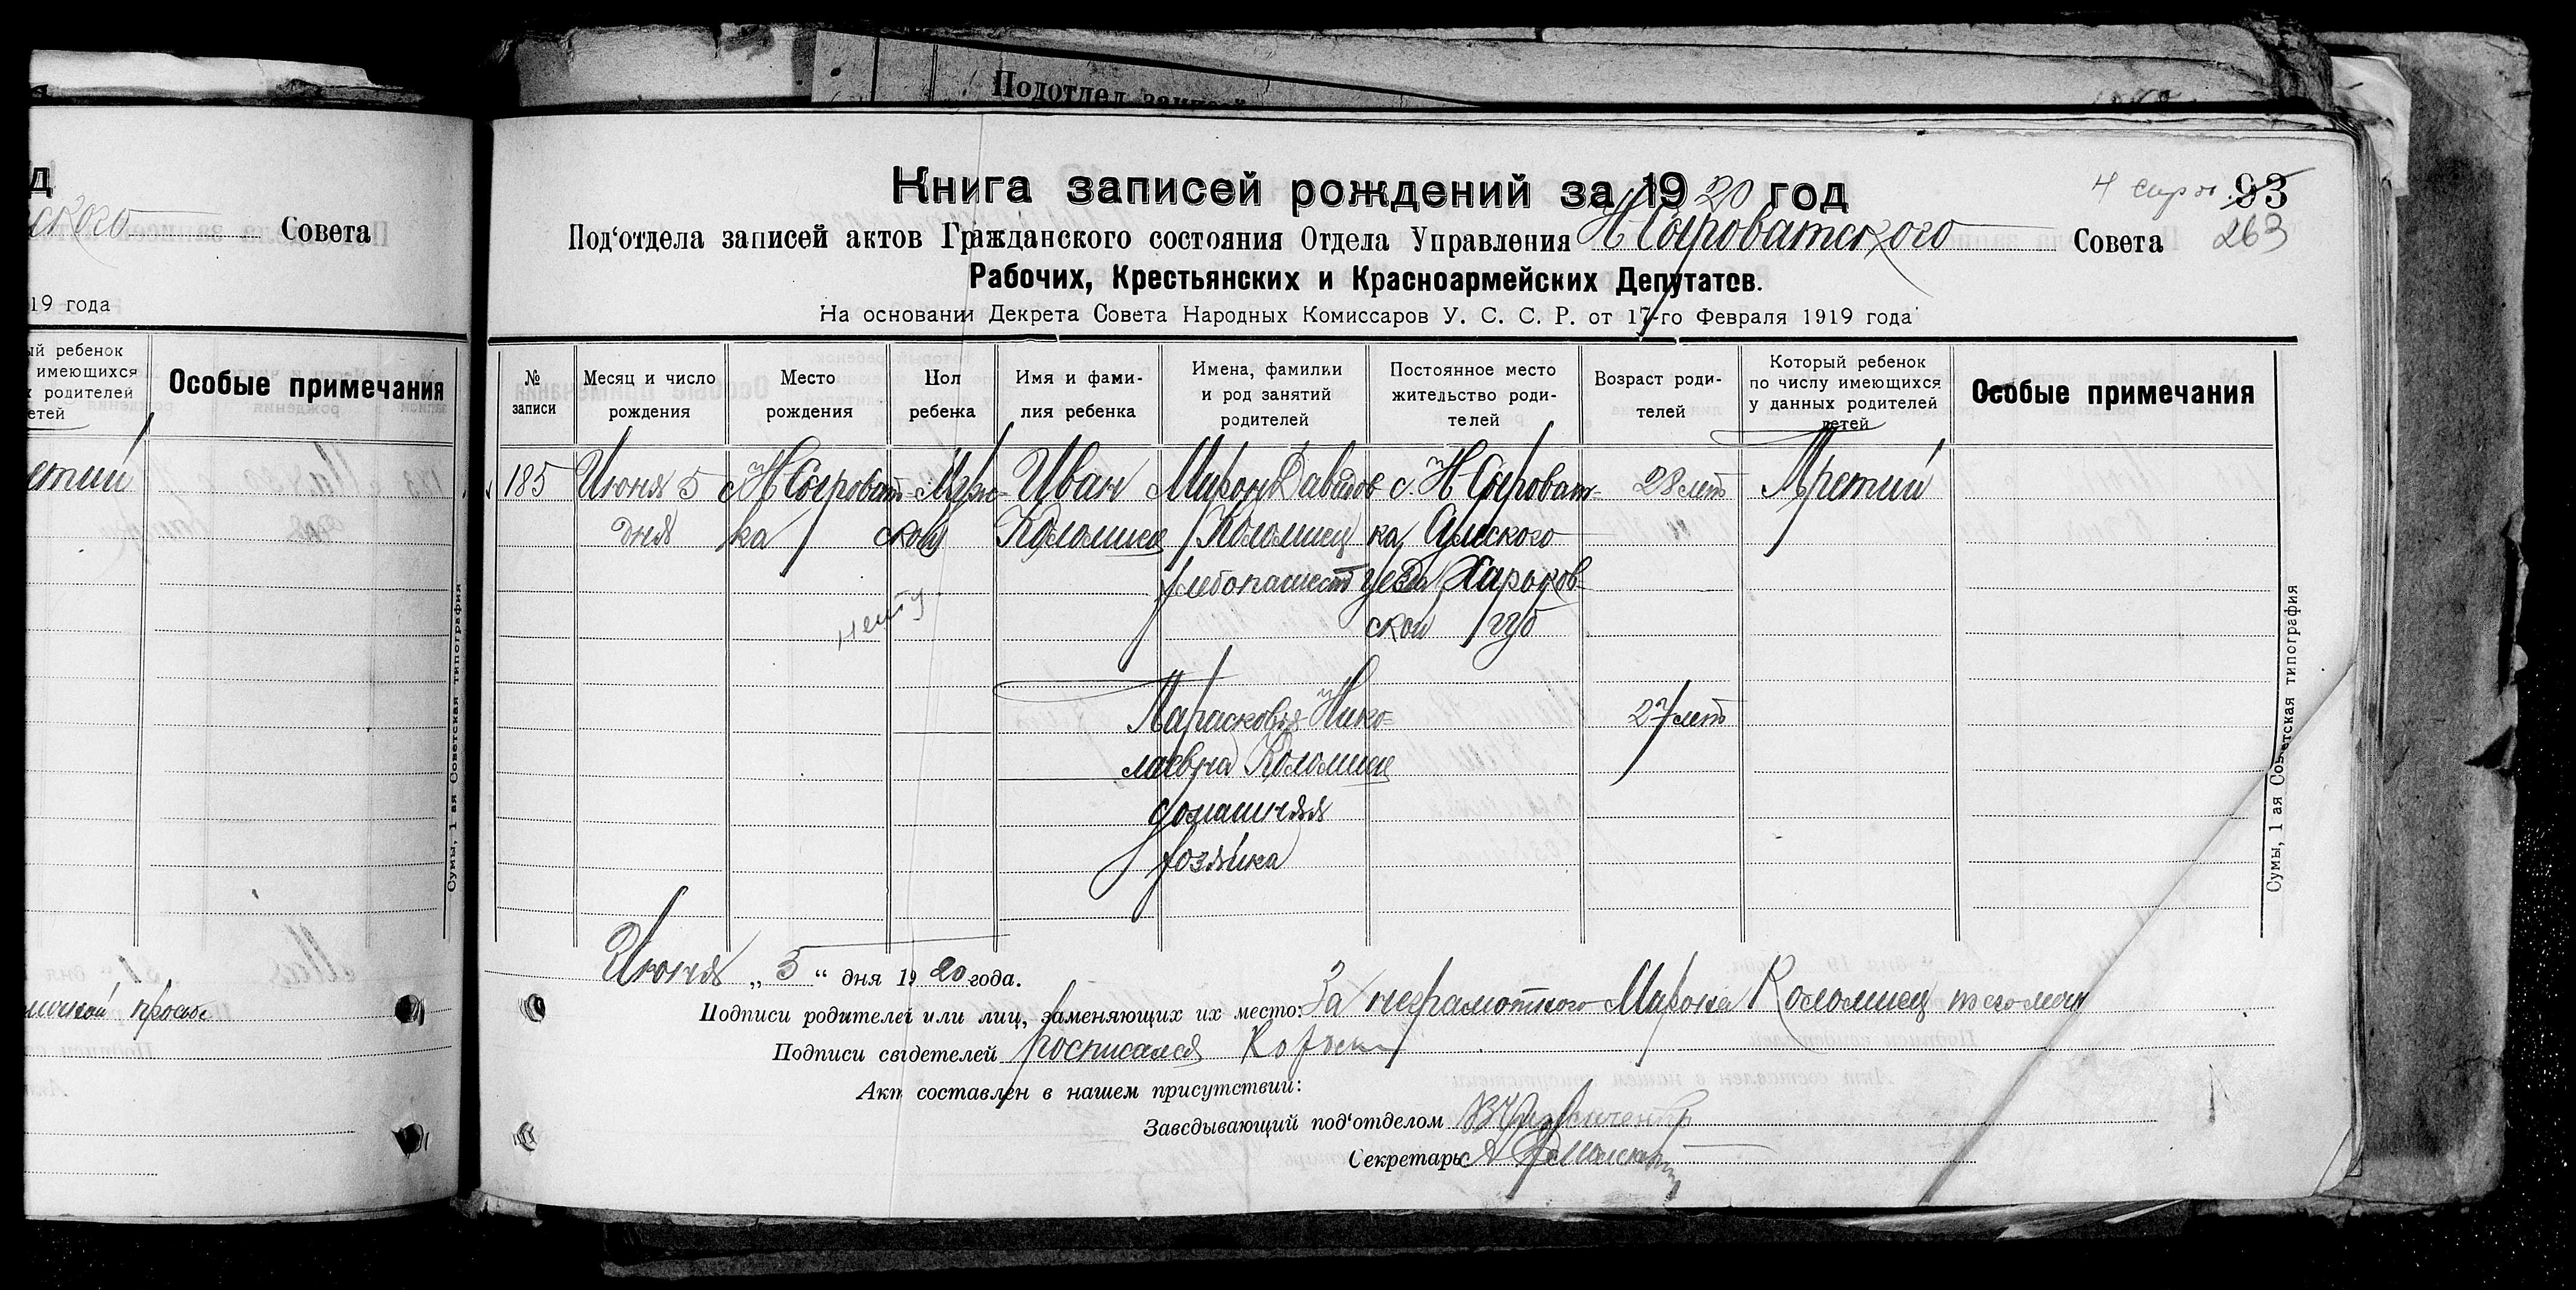 Подотдел записей
д
ского Совета
19 года
ый ребенок
имеющихся
х родителей
етей
Особые примечания
етий
Сумы, 1 ая Советская типография
личной просьбе
Книга записей рождений за 1920 год
4 сирот 93
263
Под‘отдела записей актов Гражданского состояния Отдела Управления Н Сыроватского Совета
Рабочих, Крестьянских и Красноармейских Депутатов.
На основании Декрета Совета Народных Комиссаров У. С. С. Р. от 17-го Февраля 1919 года
№ записи
Месяц и число рождения
Место рождения
Пол ребенка
Имя и фами-лия ребенка
Имена, фамилии и род занятий родителей
Постоянное место жительство роди-телей
Возраст роди-телей
Который ребенок по числу имеющихся у данных родителей детей
Особые примечания
185 Июня 5 с Н Сыроват- Муж- Иван Мирон Давидов с. Н Сыроват- 28 лет Третий
дня ка ской Коломиец Коломиец ка, Сумского
хлебопашест уезда Харьков-
нету ской губ
Парасковья Нико- 27 лет
лаевна Коломиец
домашняя
хозяйка
Июня „ 5 “ дня 1920 года.
Подписи родителей или лиц, заменяющих их место: За неграмотного Мирона Коломиец по его личн
Подписи свідетелей росписался
Акт составлен в нашем присутствий:
Заведывающий под‘отделом
Секретарь
Сумы, 1 ая Советская типография